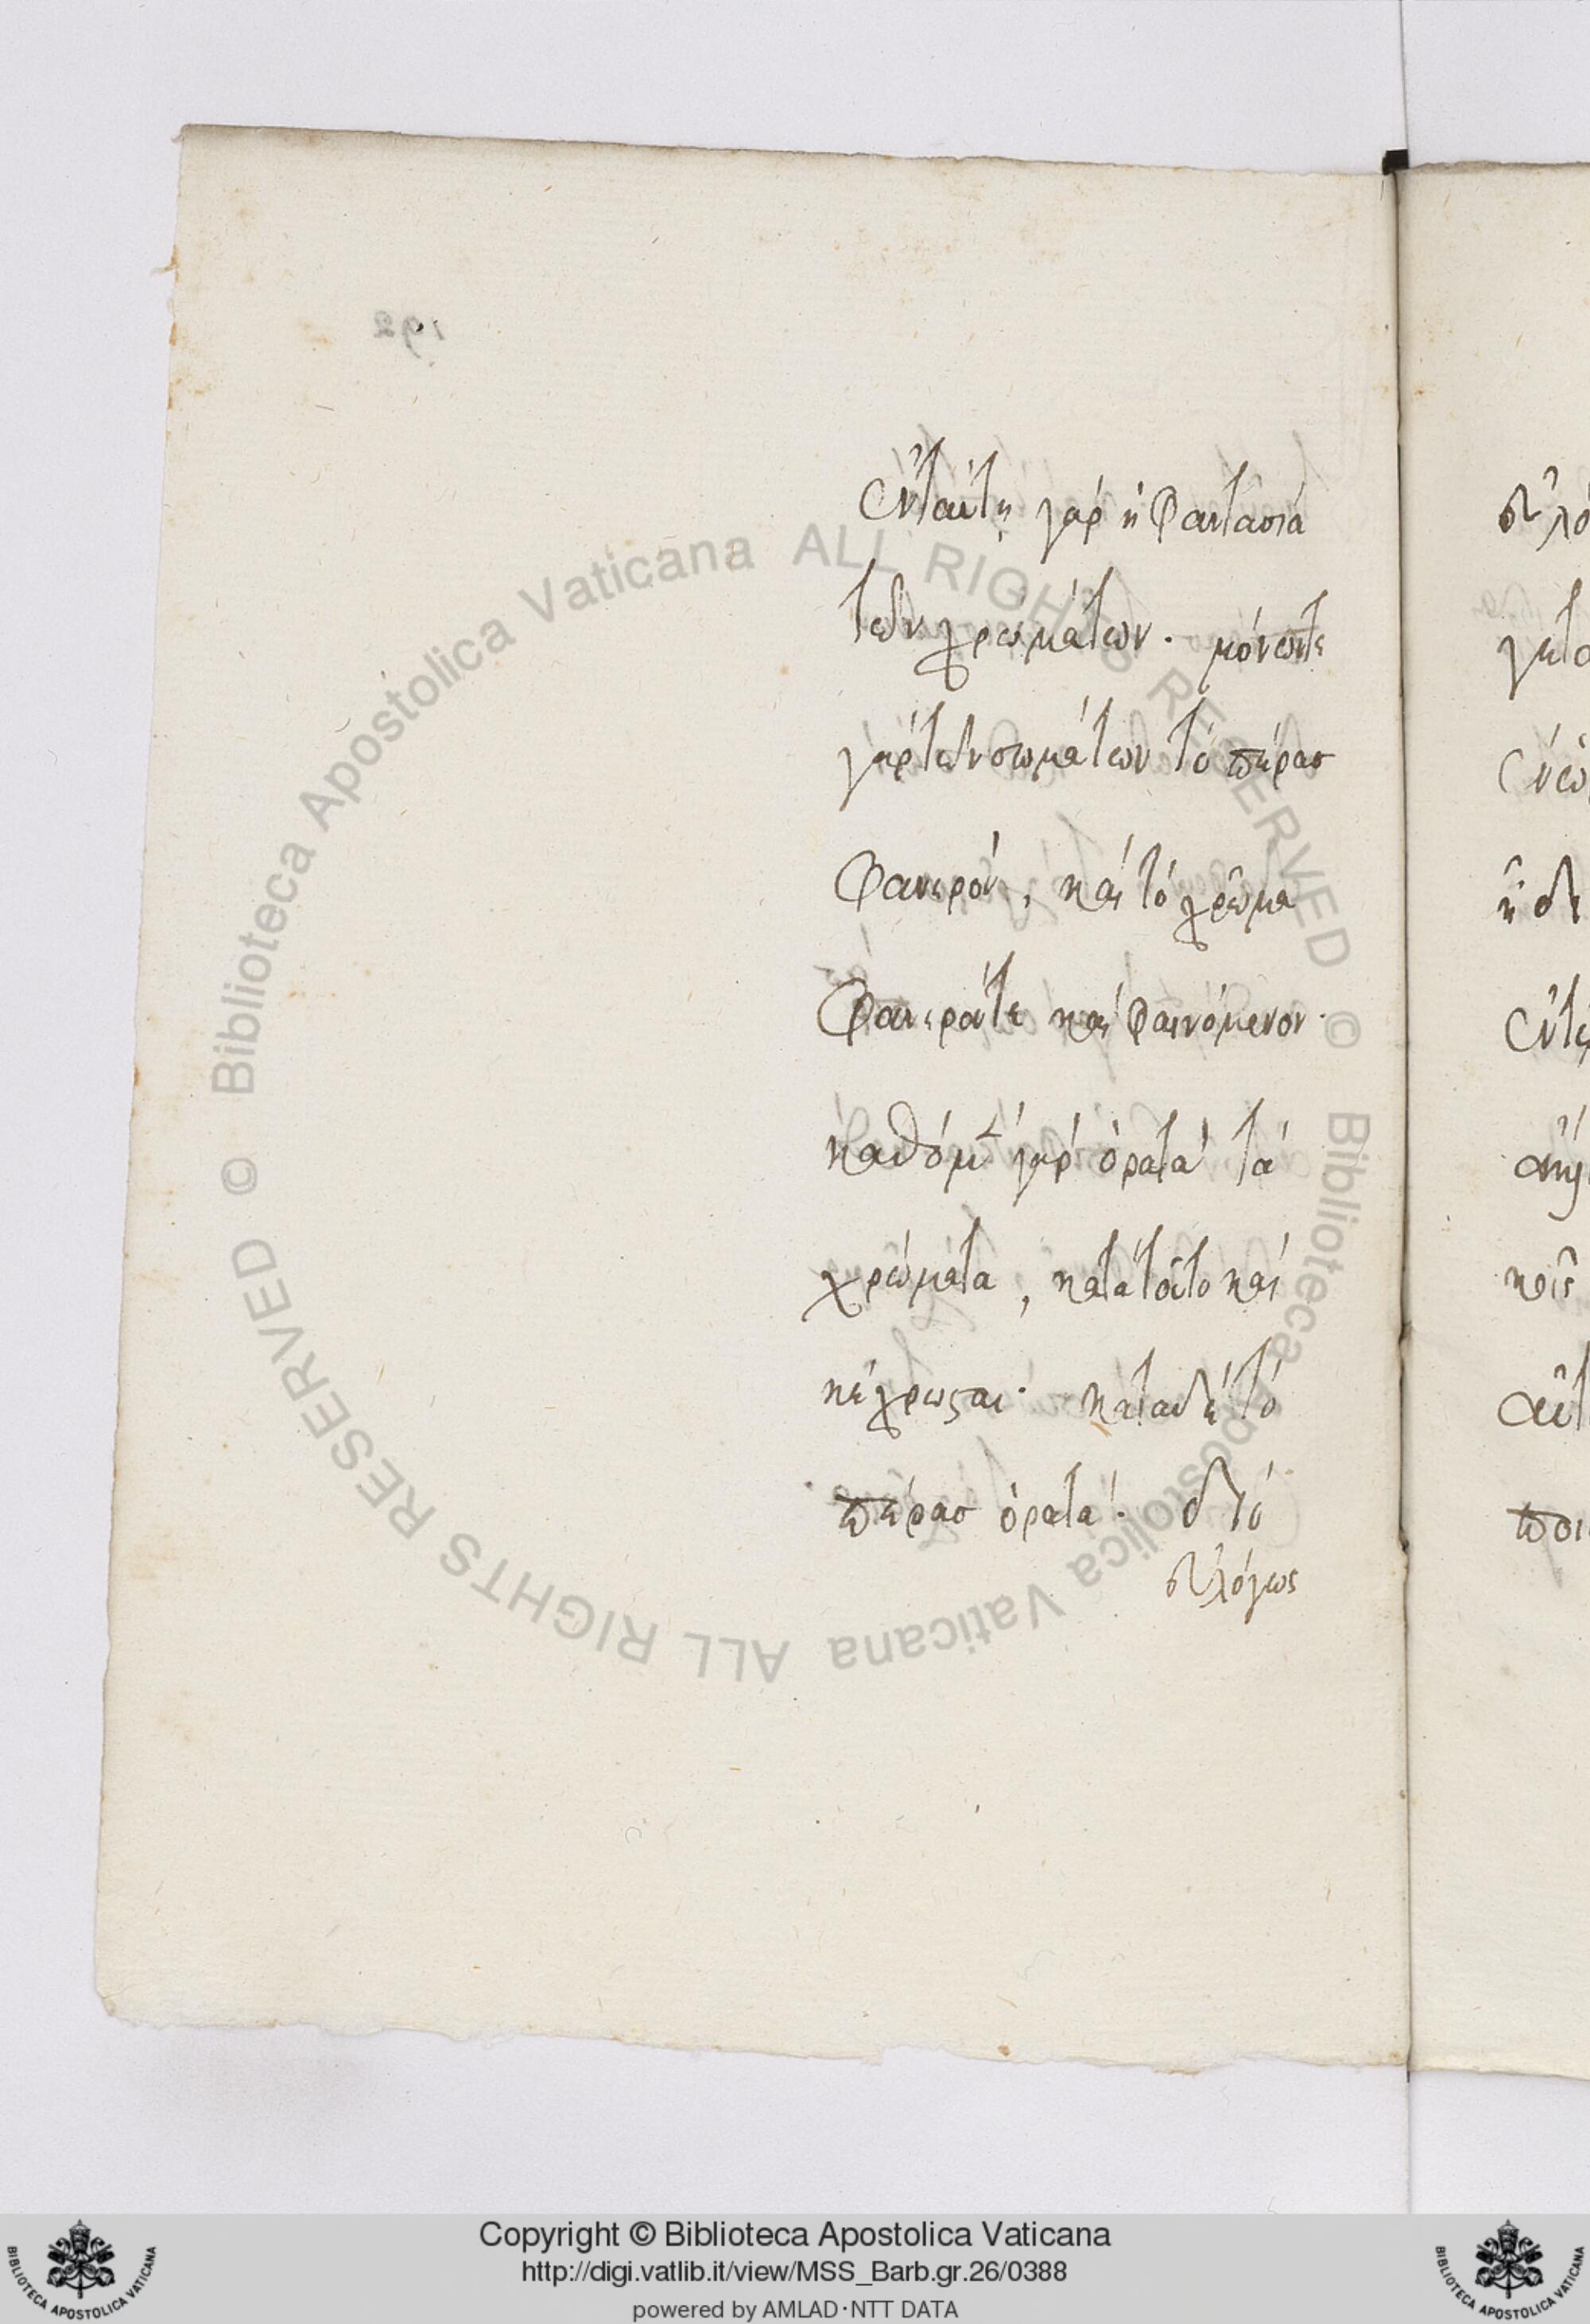 ἐν ταύτῃ γάρ ἡ φαντασία
τῶν χρωμάτων. μόνον τε
γάρ τῶν σωμάτων τό πέρας
φανερόν, καί τό χρῶμα
φανερόν τε καί φαινόμενον.
γάρ ὁρατά τά
χρώματα, κατά τοῦτο καί
κέχρωσται. κατά δέ τό
πέρας ὁρατά. διό
εὐλόγως
Biblioteca Apostolica Vaticana ALL RIGHTS RESERVED ©
Biblioteca Apostolica Vaticana ALL RIGHTS RESERVED ©
Copyright © Biblioteca Apostolica Vaticana
http://digi.vatlib.it/view/MSS_Barb.gr.26/0388
powered by AMLAD·NTT DATA
BIBLIOTECA APOSTOLICA VATICANA
BIBLIOTECA APOSTOLICA VATICANA